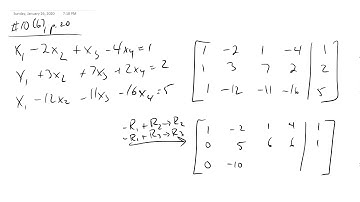 Sunday, January 26, 2020 7:18 PM
#10(b), p.20
x₁ - 2x₂ + x₃ - 4x₄ = 1
x₁ + 3x₂ + 7x₃ + 2x₄ = 2
x₁ - 12x₂ - 11x₃ - 16x₄ = 5
1 -2 1 -4 | 1
1 3 7 2 | 2
1 -12 -11 -16 | 5
-R₁ + R₂ → R₂
-R₁ + R₃ → R₃
1 -2 1 4 | 1
0 5 6 6 | 1
0 -10